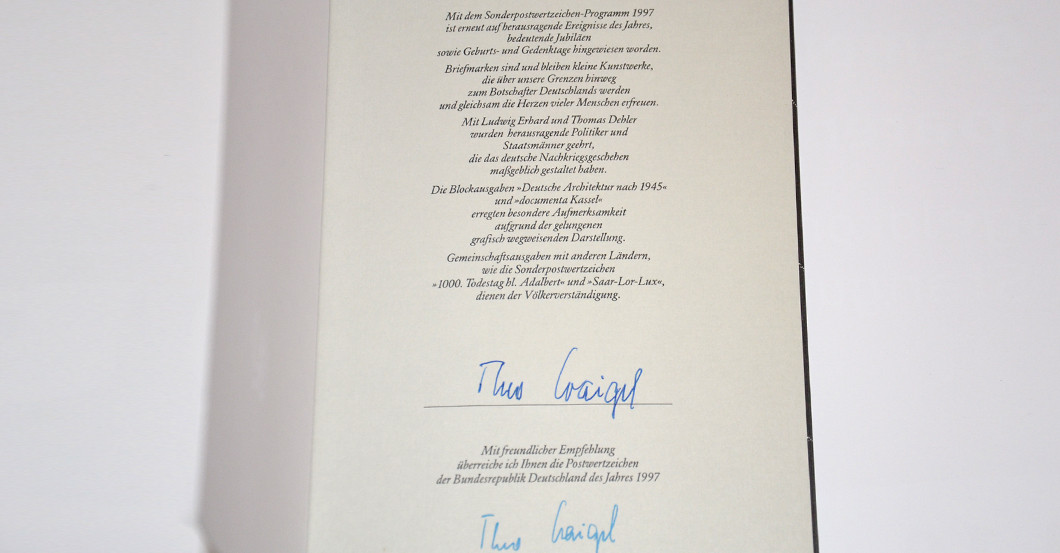 Mit dem Sonderpostwertzeichen-Programm 1997
ist erneut auf herausragende Ereignisse des Jahres,
bedeutende Jubiläen
sowie Geburts- und Gedenktage hingewiesen worden.
Briefmarken sind und bleiben kleine Kunstwerke,
die über unsere Grenzen hinweg
zum Botschafter Deutschlands werden
und gleichsam die Herzen vieler Menschen erfreuen.
Mit Ludwig Erhard und Thomas Dehler
wurden herausragende Politiker und
Staatsmänner geehrt,
die das deutsche Nachkriegsgeschehen
maßgeblich gestaltet haben.
Die Blockausgaben »Deutsche Architektur nach 1945«
und »documenta Kassel«
erregten besondere Aufmerksamkeit
aufgrund der gelungenen
grafisch wegweisenden Darstellung.
Gemeinschaftsausgaben mit anderen Ländern,
wie die Sonderpostwertzeichen
»1000. Todestag hl. Adalbert« und »Saar-Lor-Lux«,
dienen der Völkerverständigung.
Theo Waigel
Mit freundlicher Empfehlung
überreiche ich Ihnen die Postwertzeichen
der Bundesrepublik Deutschland des Jahres 1997
Theo Waigel